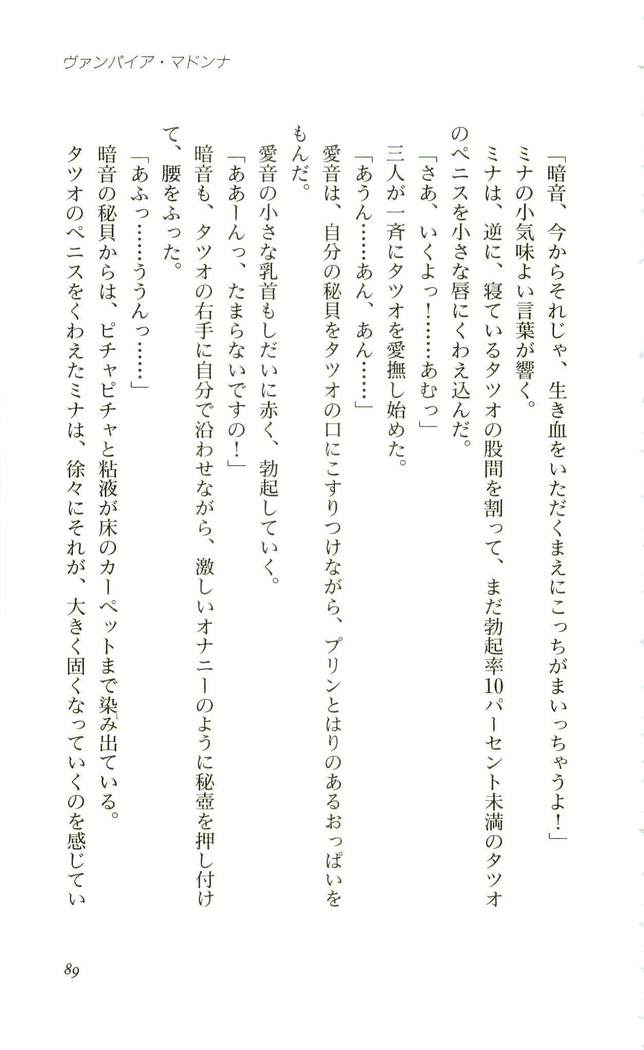 ヴァンパイア・マドンナ
「暗音、今からそれじゃ、生き血をいただくまえにこっちがまいっちゃうよ！」
ミナの小気味よい言葉が響く。
ミナは、逆に、寝ているタツオの股間を割って、まだ勃起率10パーセント未満のタツオ
のペニスを小さな唇にくわえ込んだ。
「さあ、いくよっ！……あむっ」
三人が一斉にタツオを愛撫し始めた。
「あうん……あん、あん……」
愛音は、自分の秘貝をタツオの口にこすりつけながら、プリンとはりのあるおっぱいを
もんだ。
愛音の小さな乳首もしだいに赤く、勃起していく。
「ああーんっ、たまらないですの！」
暗音も、タツオの右手に自分で沿わせながら、激しいオナニーのように秘壺を押し付け
て、腰をふった。
「あふっ……ううんっ……」
暗音の秘貝からは、ピチャピチャと粘液が床のカーペットまで染み出ている。
タツオのペニスをくわえたミナは、徐々にそれが、大きく固くなっていくのを感じてい
89